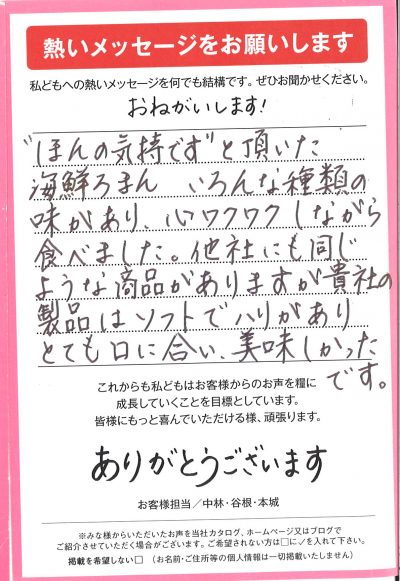 熱いメッセージをお願いします
私どもへの熱いメッセージを何でも結構です。ぜひお聞かせください。
おねがいします!
"ほんの気持です"と頂いた
海鮮ろまん いろんな種類の
味があり、心ワクワクしながら
食べました。他社にも同じ
ような商品がありますが貴社の
製品はソフトでハリがあり
とても口に合い、美味しかった
です。
これからも私どもはお客様からのお声を糧に
成長していくことを目標としています。
皆様にもっと喜んでいただける様、頑張ります。
ありがとうございます
お客様担当/中林・谷根・本城
※みな様からいただいたお声を当社カタログ、ホームページ又はブログで
ご紹介させていただく場合がございます。ご希望されない方は□に✓を入れて下さい。
掲載を希望しない□ (お名前・ご住所等の個人情報は一切掲載いたしません)